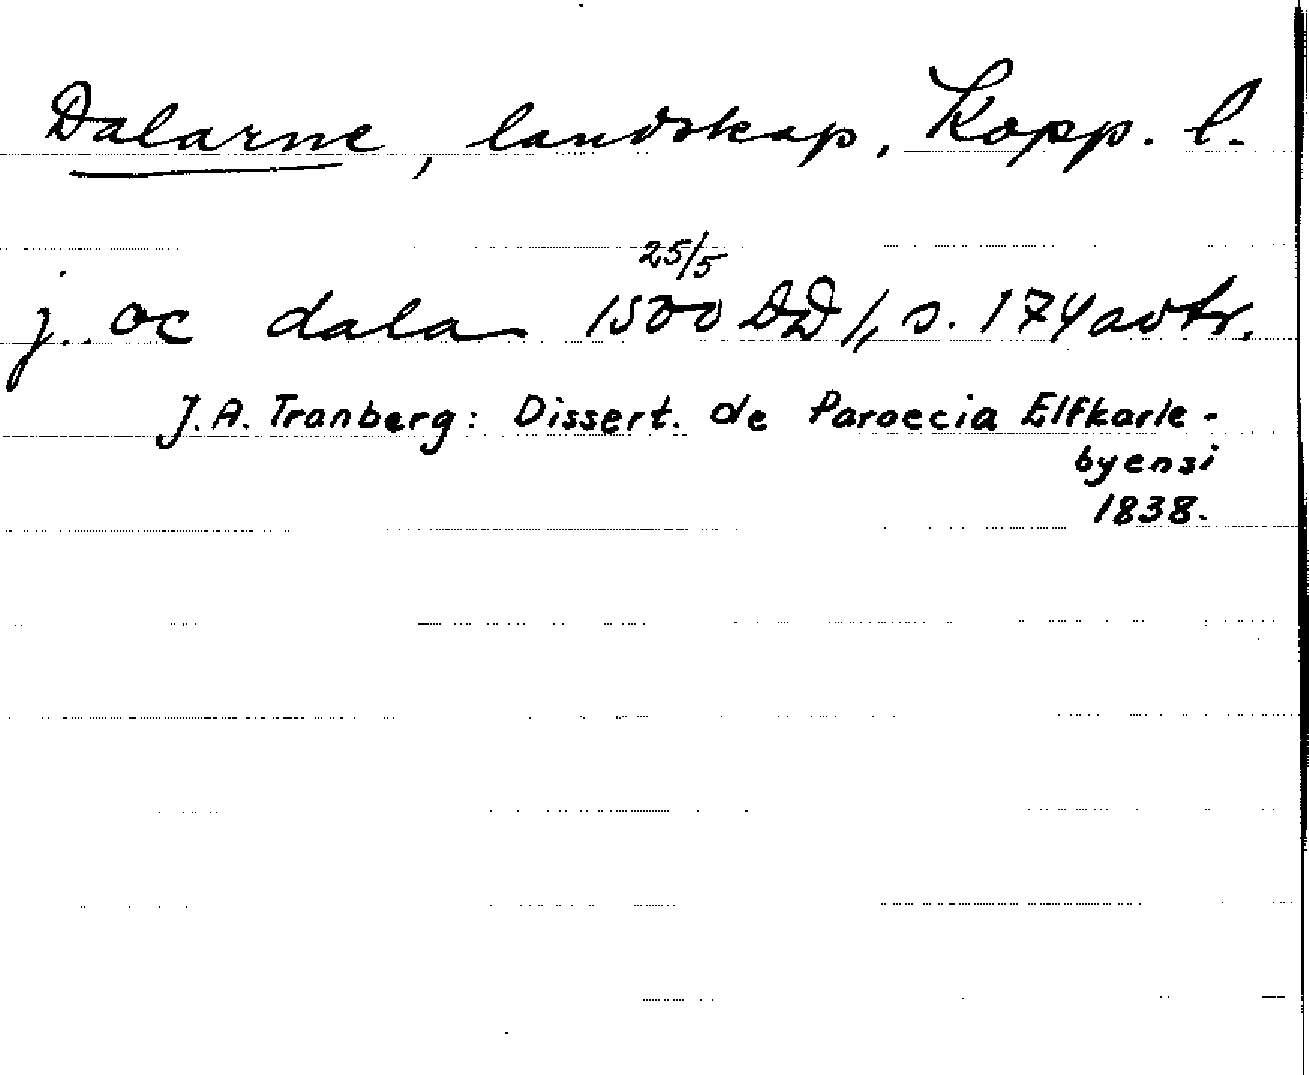 Dalarne, landskap, Kopp. l.
25/5
j.. oc dala 1500 DD 1, s. 174 avtr.
J.A. Tranberg: Dissert. de Paroecia Elfkarle-
byensi
1838.